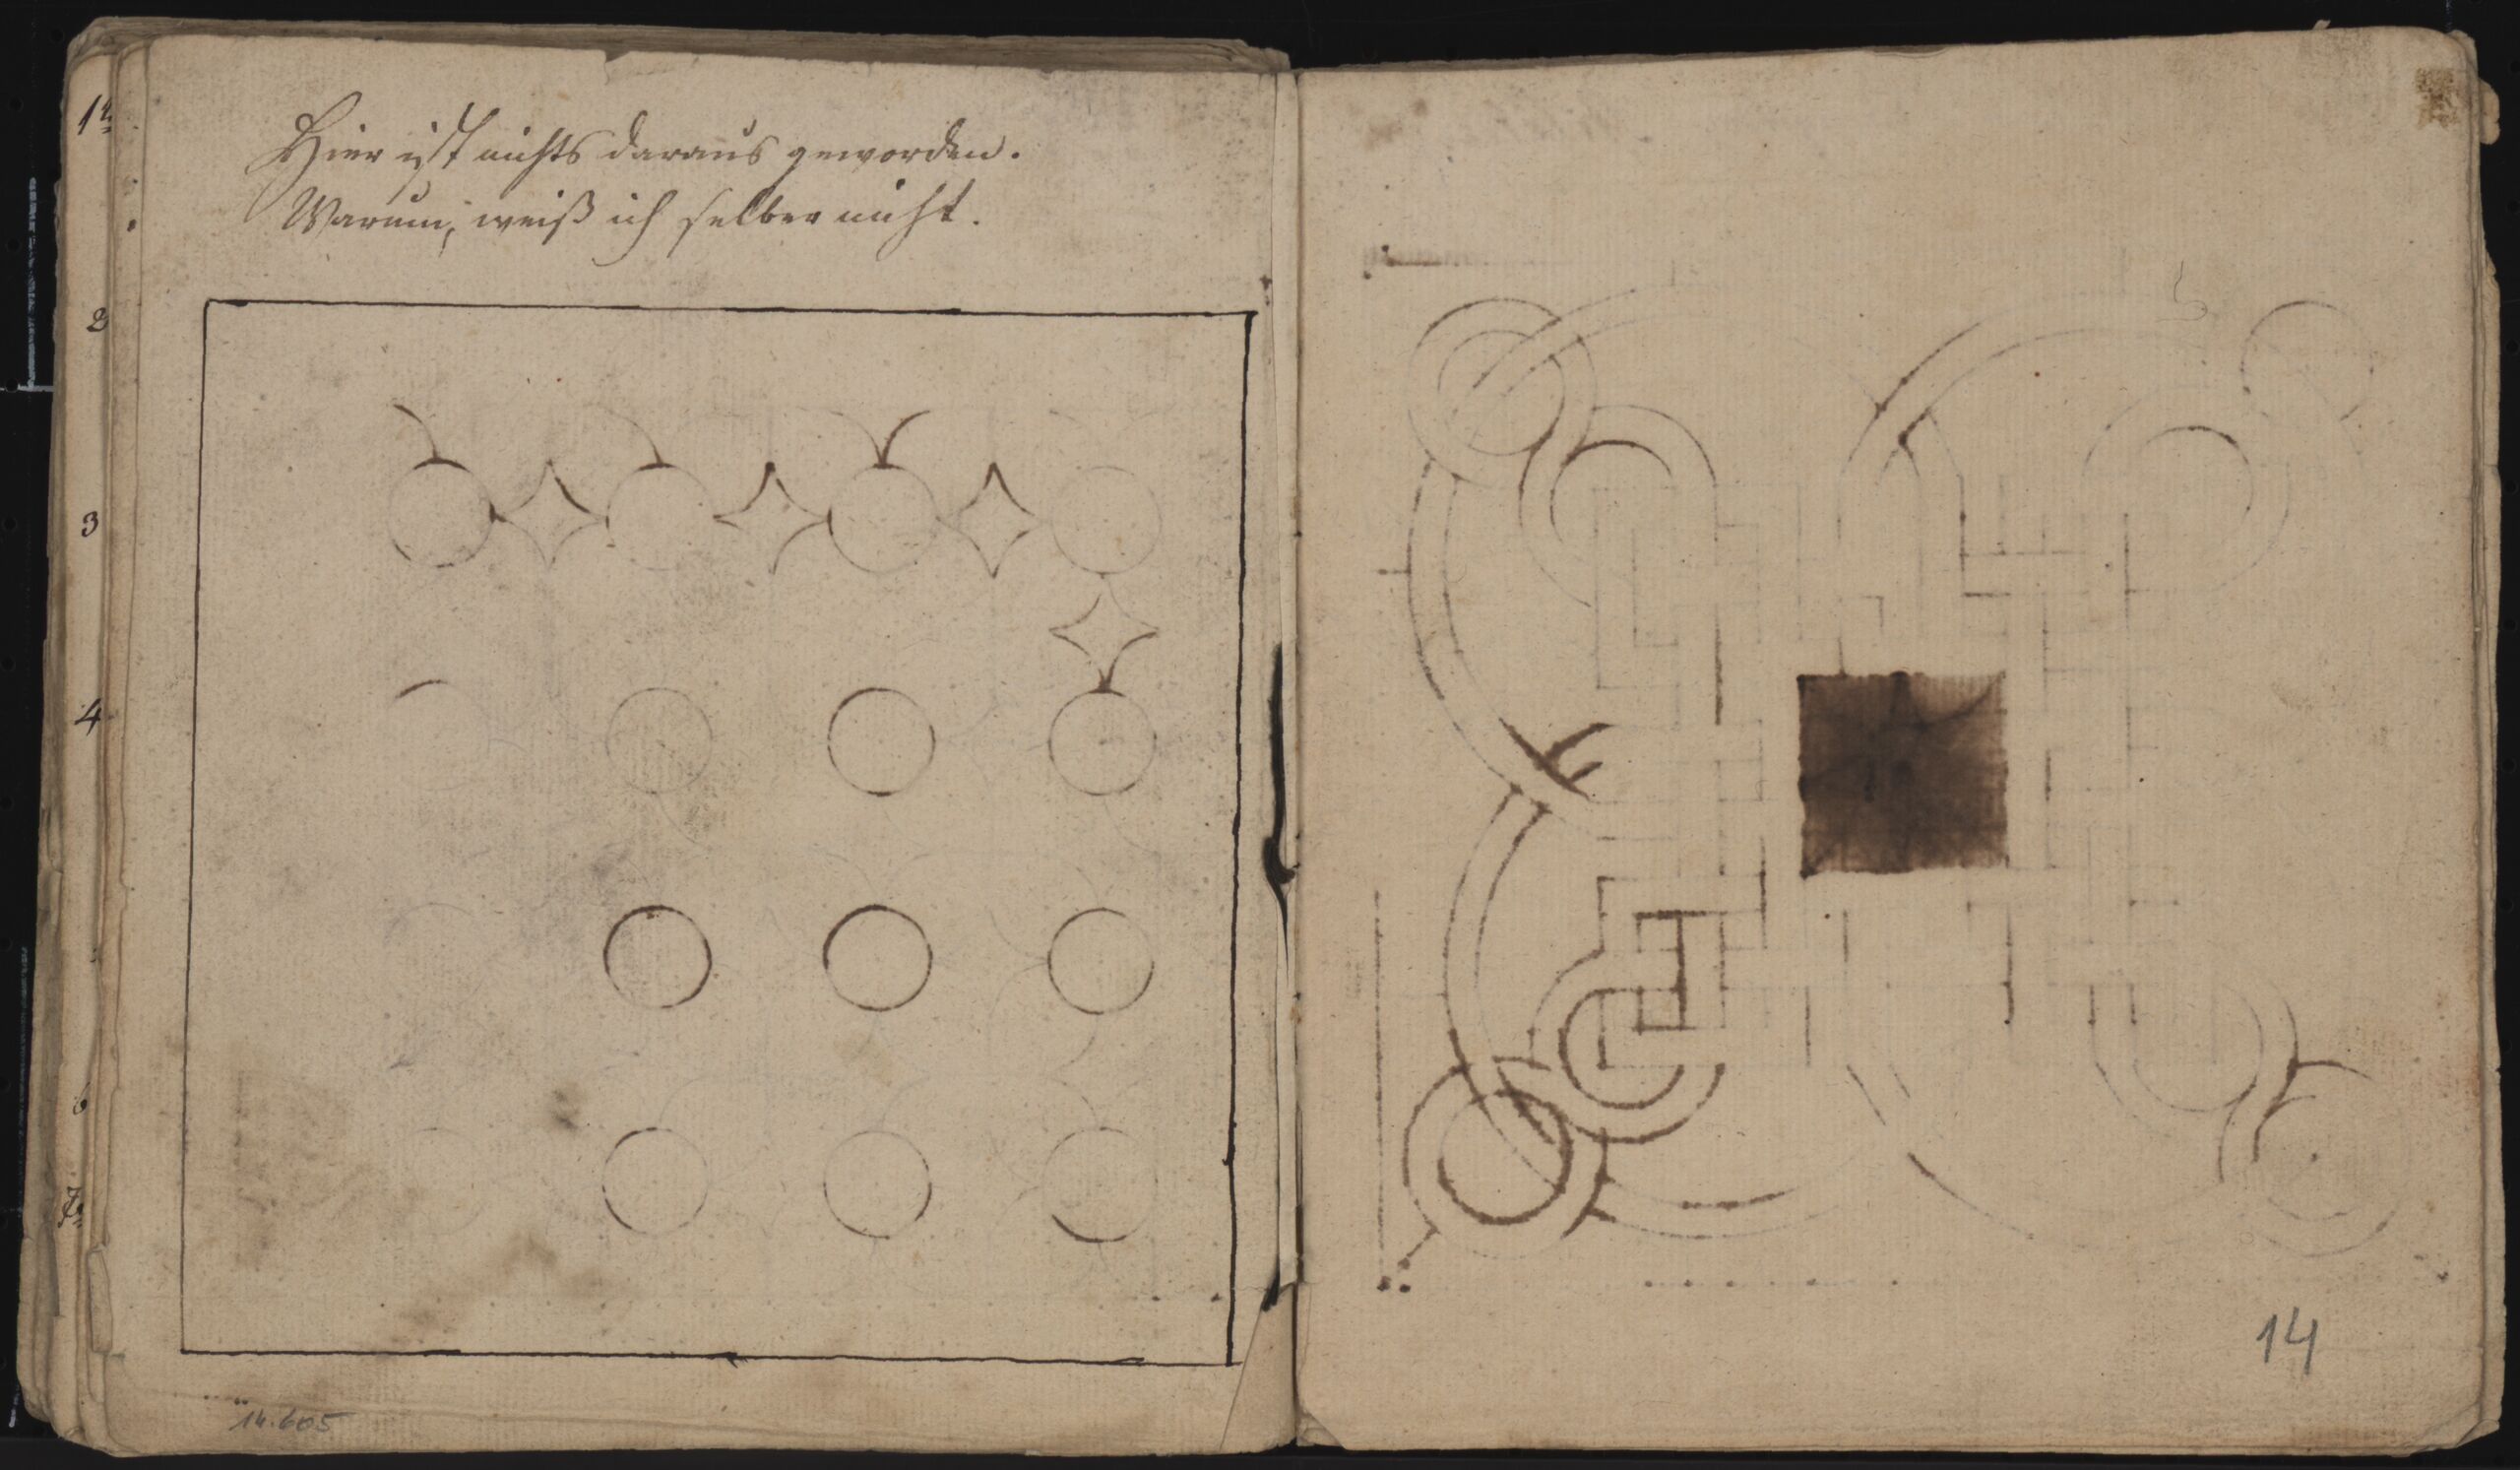 Hier ist nichts daraus geworden.
Warum, weiß ich selber nicht.
1
2
3
4
6
7
14.605
14